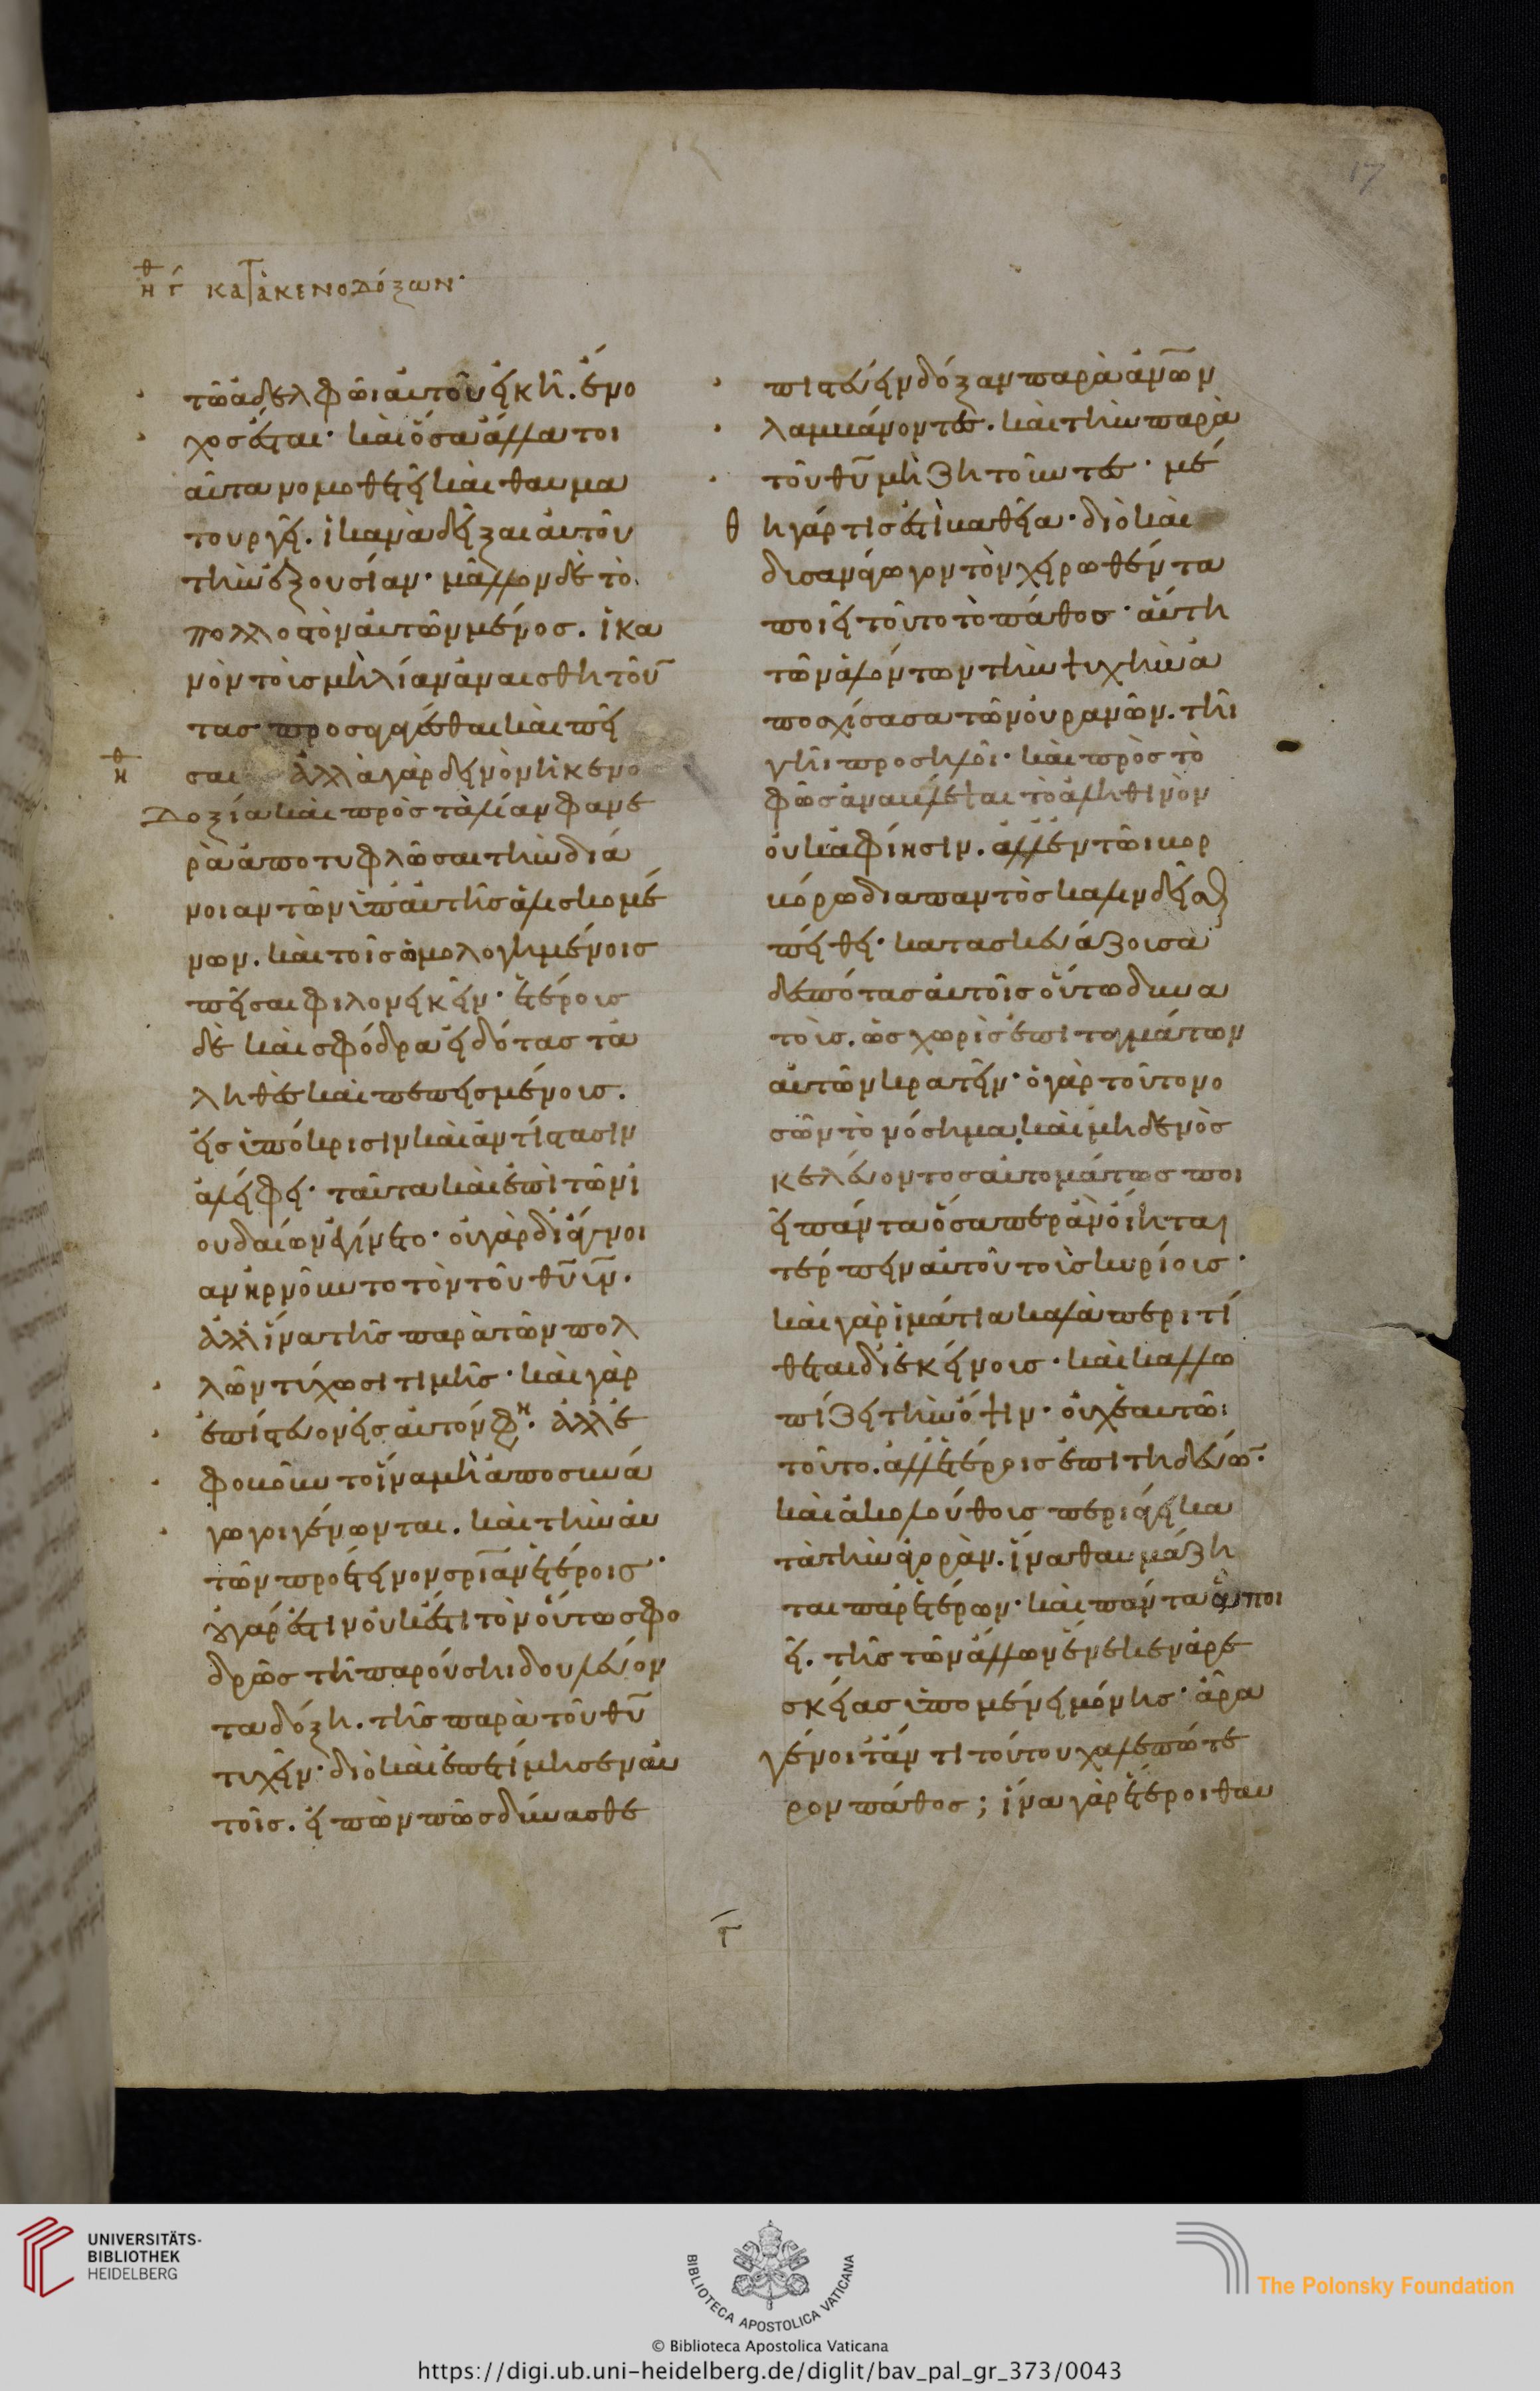 17
ἠθ γ κατὰ κενοδόξων·
τῶ ἀδελφῶι αὐτοῦ εἰκῆ. ἔνο
χος ἔσται· καὶ ὅσα ἄλλα τοι
αῦτα νομοθετεῖ καὶ θαυμα
τουργεῖ. ἱκανὰ δεῖξαι αὐτοῦ
τὴν ἐξουσίαν· μᾶλλον δὲ τὸ
πολλοστὸν αὐτῶν μένος. ἱκα
νὸν τοῖς μὴ λίαν ἀναισθητοῦ
τας προσάγεσθαι καὶ πεῖ
σαι ἀλλὰ γὰρ δεινὸν ἡ κενο
Δοξία καὶ πρὸς τὰ λίαν φανε
ρὰ ἀποτυφλῶσαι τὴν διά
νοιαν τῶν ὑπ αὐτῆς ἁλισκομέ
νων. καὶ τοῖς ὁμολογημένοις
πεῖσαι φιλονεικεῖν· ἑτέροις
δὲ καὶ σφόδρα εἰδότας τἀ
ληθὲς καὶ πεπεισμένοις.
εἰς ὑπόκρισιν καὶ ἀντίστασιν
ἀλείφει· ταῦτα καὶ ἐπὶ τῶν ἰ
ουδαίων ἐγίνετο· οὐ γὰρ δι ἄγνοι
αν ἠρνοῦντο τὸν τοῦ θυ υν.
ἀλλ ἵνα τῆς παρὰ τῶν πολ
λῶν τύχωσι τιμῆς· καὶ γὰρ
ἐπίστευον εἰς αὐτόν φη. ἀλλ ἐ
φοβοῦντο ἵνα μὴ ἀποσυνά
γωγοι γένωνται. καὶ τὴν αὐ
τῶν προέτεινον σριαν ἑτέροις·
οὐ γάρ ἐστιν οὐκ ἔστι τὸν οὕτω σφο
δρῶς τῆ παρούση δουλεύον
τα δόξη. τῆς παρὰ τοῦ θυ
τυχεῖν· διὸ καὶ ἐπετίμησεν αὐ
τοῖς. εἰπὼν πῶς δύνασθε
πιστεύειν δόξαν παρὰ ανων
λαμβάνοντες. καὶ τὴν παρὰ
τοῦ θυ μὴ ζητοῦντες· μέ
θη γάρ τις ἐστὶ βαθεῖα· διὸ καὶ
δυσανάγωγον τὸν χειρωθέντα
ποιεῖ τοῦτο τὸ πάθος· αὕτη
τῶν ἁλόντων τὴν ψυχὴν ἀ
ποσχίσασα τῶν οὐρανῶν. τῆι
γῆι προσηλοῖ· καὶ πρὸς τὸ
φῶς ἀναβλέψαι τὸ ἀληθινὸν
οὐκ ἀφίησιν. ἀλλ ἐν τῶι βορ
βόρω διαπαντὸς καλινδεῖσθαι
πείθει· κατασκευάζουσα
δεσπότας αὐτοῖς οὕτω δυνα
τοὺς. ὡς χωρὶς ἐπιταγμάτων
αὐτῶν κρατεῖν· ὁ γὰρ τοῦτο νο
σῶν τὸ νόσημα, καὶ μηδενὸς
κελεύοντος αὐτομάτως ποι
εῖ πάντα ὅσαπερ ἂν οἴηται
τέρπειν αὐτοῦ τοὺς κυρίους·
καὶ γὰρ ἱμάτια καλὰ περιτί
θεται δι ἐκείνους· καὶ καλλω
πίζει τὴν ὄψιν· οὐχ ἑαυτῶι
τοῦτο. ἀλλ ἑτέροις ἐπιτηδεύω·
καὶ ἀκολούθους περιάγει κα
τὰ τὴν ἀγορὰν. ἵνα θαυμάζη
ται παρ ἑτέρων· καὶ πάντα ἃ ποι
εῖ. τῆς τῶν ἄλλων ἕνεκεν ἀρε
σκείας ὑπομένει μόνης· ἆρα
γένοιτ ἄν τι τούτου χαλεπώτε
ρον πάθος; ἵνα γὰρ ἕτεροι θαυ
UNIVERSITÄTS-
BIBLIOTHEK
HEIDELBERG
BIBLIOTECA APOSTOLICA VATICANA
The Polonsky Foundation
© Biblioteca Apostolica Vaticana
https://digi.ub.uni-heidelberg.de/diglit/bav_pal_gr_373/0043